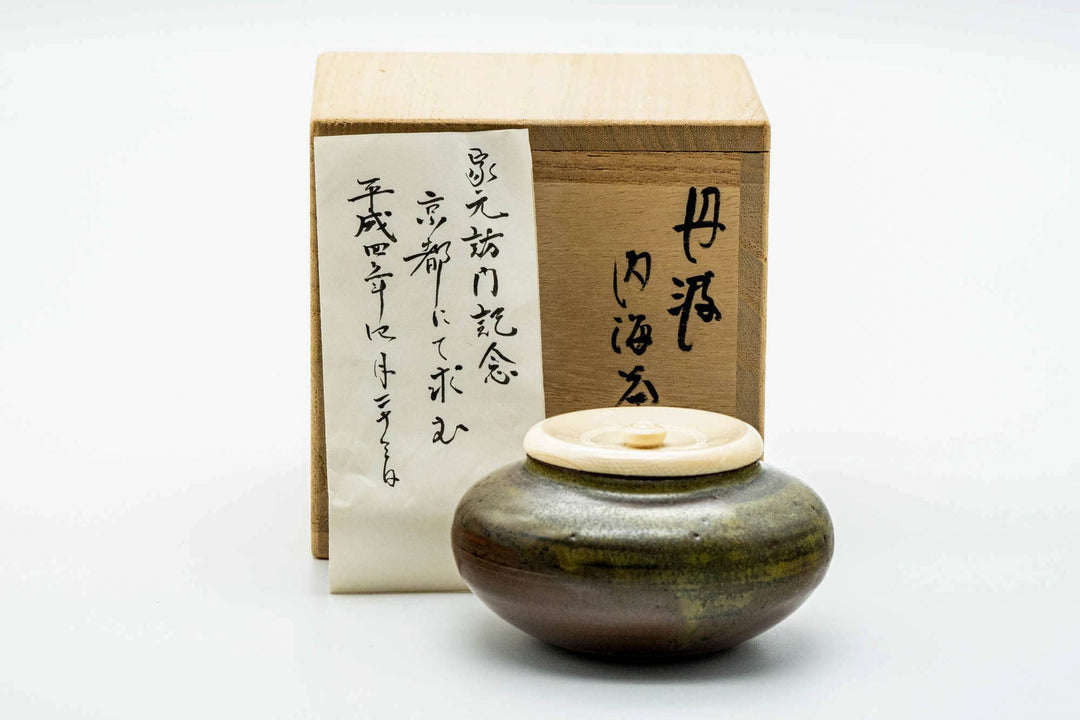 家元訪門記念
京都にて求む
平成四年四月二十三日
丹波
内海茶